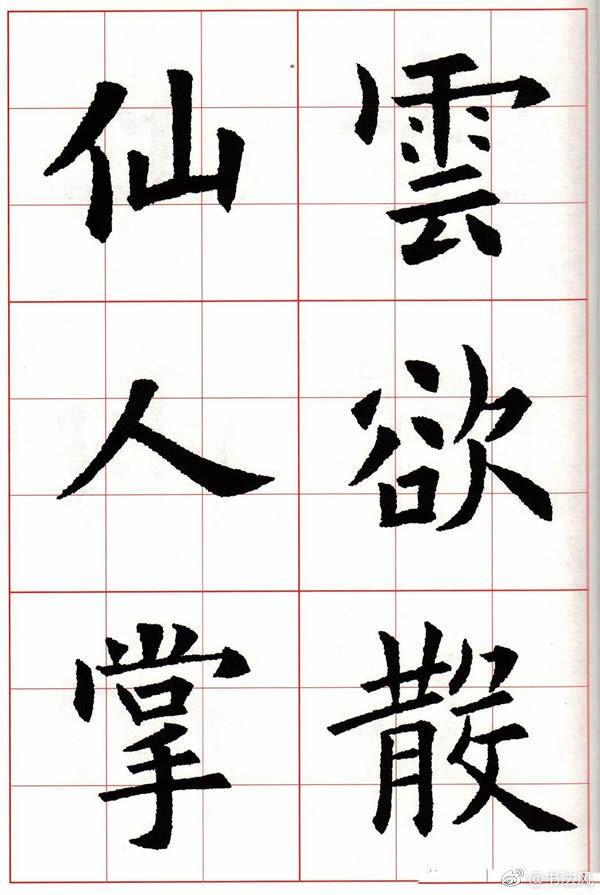 雲欲散
仙人掌
@书法网